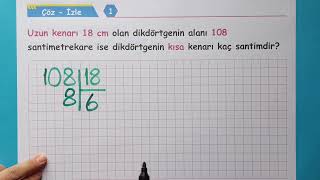 Çöz - İzle 1
Uzun kenarı 18 cm olan dikdörtgenin alanı 108
santimetrekare ise dikdörtgenin kısa kenarı kaç santimdir?
108 18
8 6